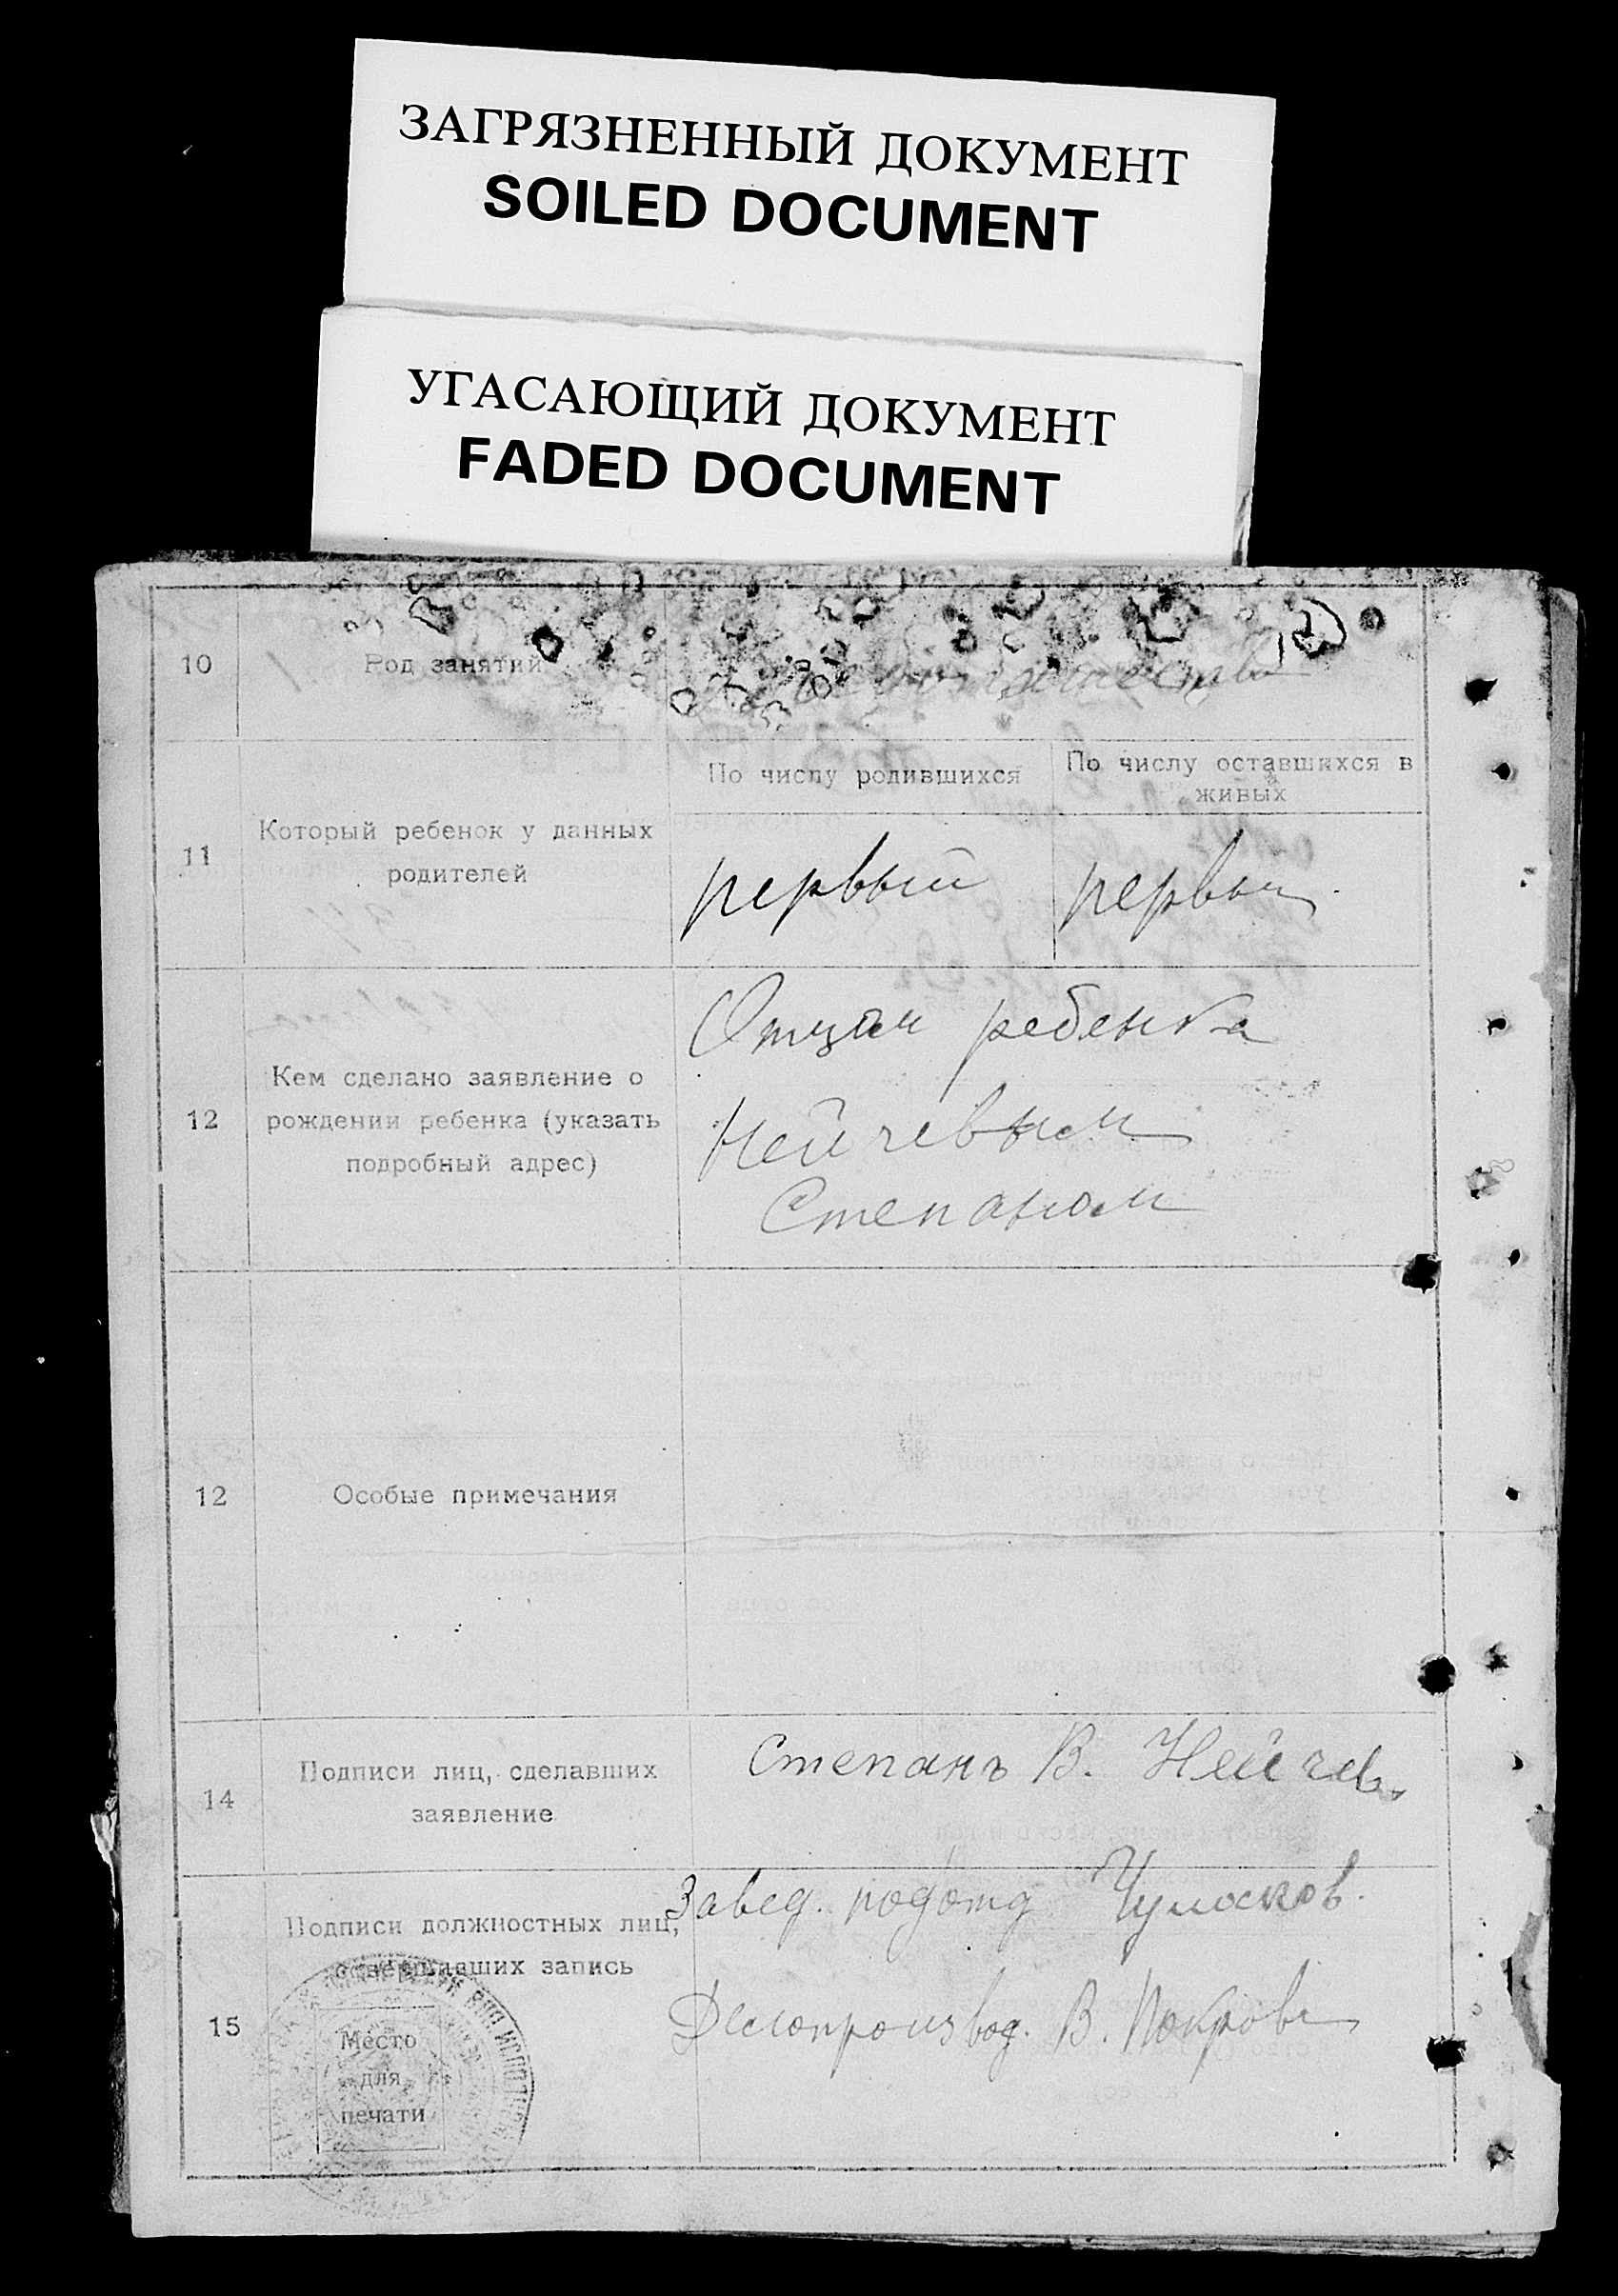 ЗАГРЯЗНЕННЫЙ ДОКУМЕНТ
SOILED DOCUMENT
УГАСАЮЩИЙ ДОКУМЕНТ
FADED DOCUMENT
10
Род занятий
11
Который ребенок у данных
родителей
По числу родившихся
По числу оставшихся в
живых
первый
первый
12
Кем сделано заявление о
рождении ребенка (указать
подробный адрес)
Отцом ребенка
Нейчевым
Степаном
12
Особые примечания
14
Подписи лиц, сделавших
заявление
Степанъ В. Нейчев
15
Подписи должностных лиц,
совершавших запись
Место
для
печати
Завед. подотд
Делопроизвод. В. Покров